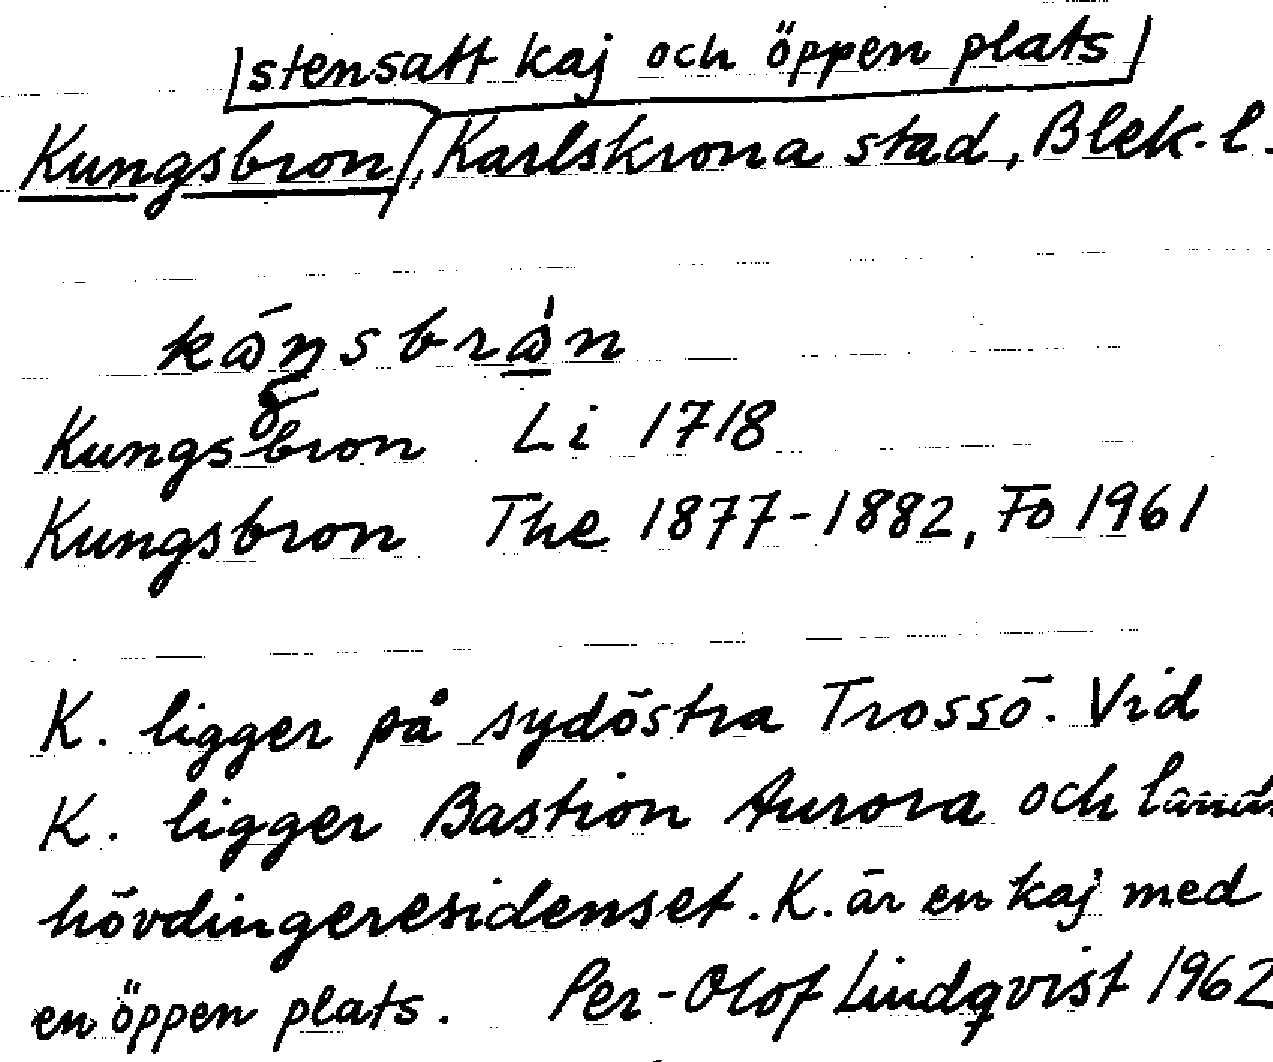 stensatt kaj och öppen plats
Kungsbron, Karlskrona stad, Blek. l.
kåŋsbrån
Kungsbron Li 1718
Kungsbron The 1877-1882, Fo 1961
K. ligger på sydöstra Trossö. Vid
K. ligger Bastion Aurora och lands
hövdingeresidenset. K. är en kaj med
en öppen plats. Per-Olof Lindqvist 1962